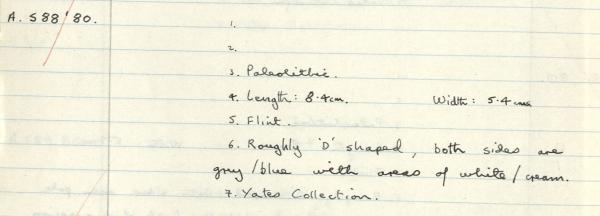 A. S88'80.
1.
2.
3. Paleolithic.
4. Length: 8.4cm. Width: 5.4cms
5. Flint.
6. Roughly 'D' shaped, both sides are
grey/blue with areas of white/cream.
7. Yates Collection.